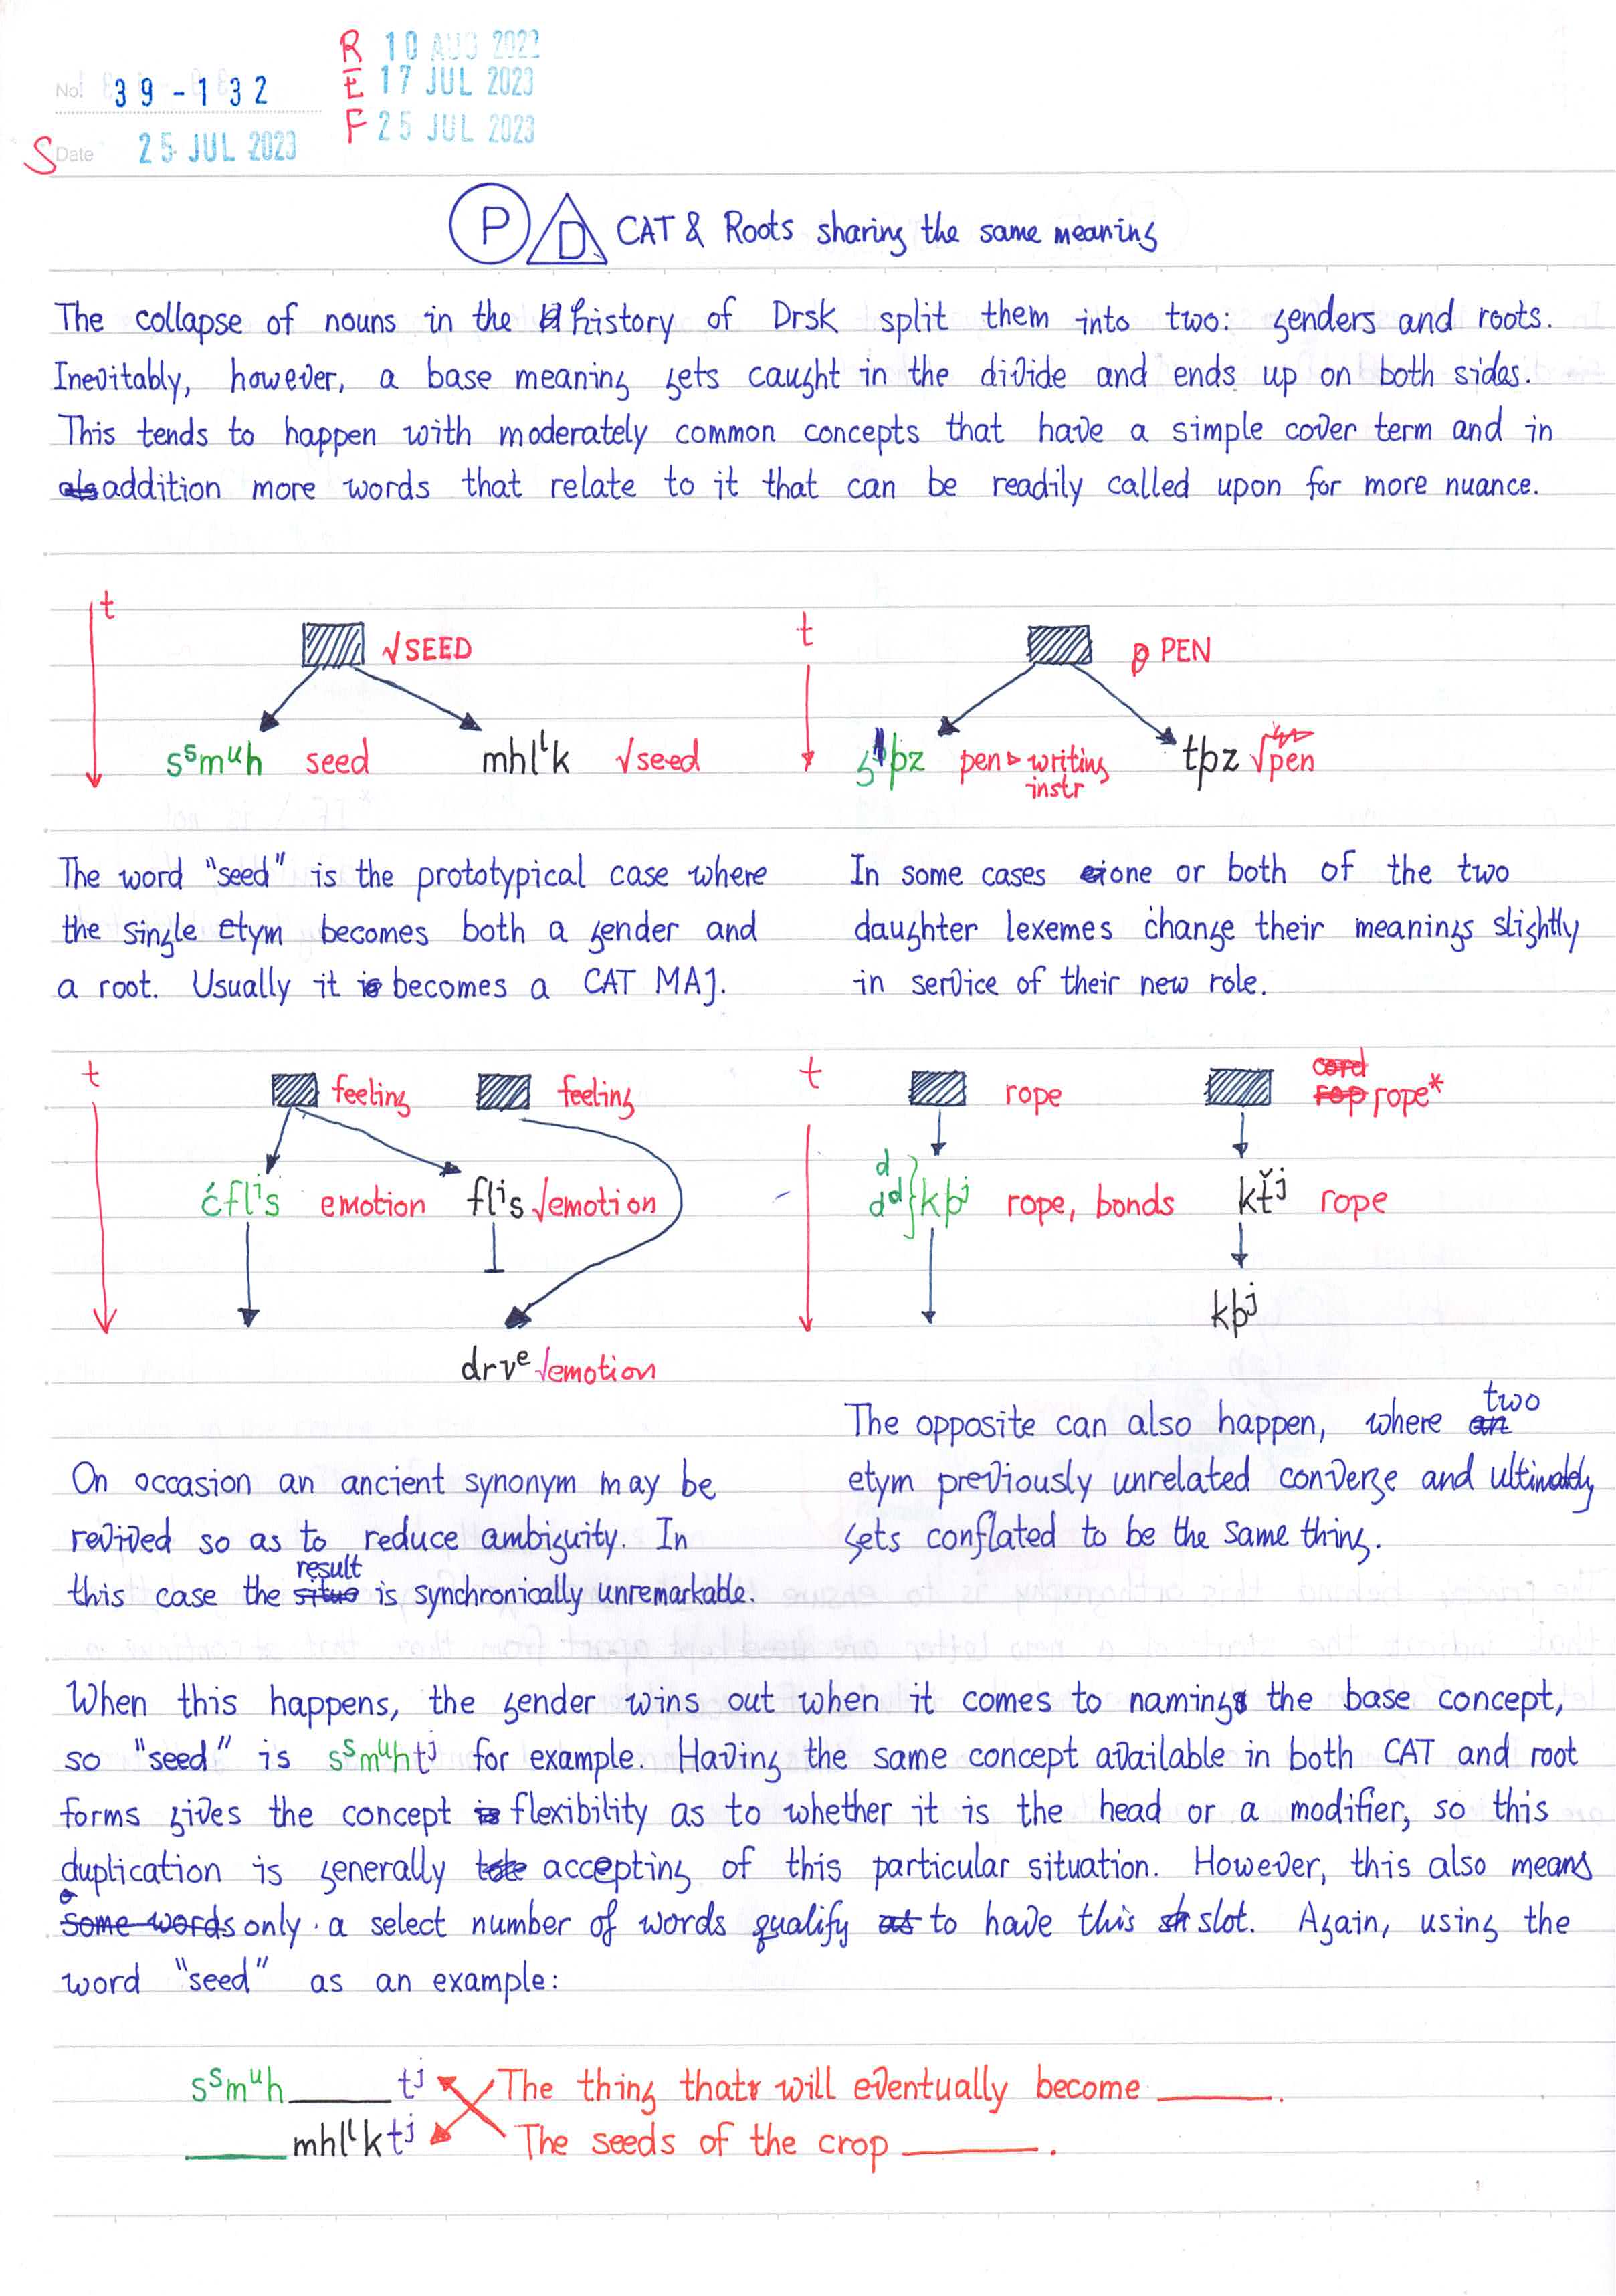 No. 39-132
R 10 AUG 2022
E 17 JUL 2023
F 25 JUL 2023
S Date 25 JUL 2023
P D CAT & Roots sharing the same meaning
The collapse of nouns in the history of Drsk split them into two: genders and roots.
Inevitably, however, a base meaning gets caught in the divide and ends up on both sides.
This tends to happen with moderately common concepts that have a simple cover term and in
addition more words that relate to it that can be readily called upon for more nuance.
t
√SEED
sˢmᵘh seed
mhlᶫk √seed
t
PEN
þz pen ▹ writing instr
tþz √pen
The word "seed" is the prototypical case where
the single etym becomes both a gender and
a root. Usually it becomes a CAT MAJ.
In some cases one or both of the two
daughter lexemes change their meanings slightly
in service of their new role.
t
feeling
feeling
ćflⁱs emotion
flⁱs √emotion
drvᵉ √emotion
t
rope
cord
rop rope*
d
dᵈ}kþʲ rope, bonds
kťʲ rope
kþʲ
On occasion an ancient synonym may be
revived so as to reduce ambiguity. In
this case the result is synchronically unremarkable.
The opposite can also happen, where two
etym previously unrelated converge and ultimately
gets conflated to be the same thing.
When this happens, the gender wins out when it comes to naming the base concept,
so "seed" is sˢmᵘhtʲ for example. Having the same concept available in both CAT and root
forms gives the concept flexibility as to whether it is the head or a modifier, so this
duplication is generally accepting of this particular situation. However, this also means
some words only a select number of words qualify to have this slot. Again, using the
word "seed" as an example:
sˢmᵘh_____tʲ The thing that will eventually become _____.
_____mhlᶫktʲ The seeds of the crop _____.